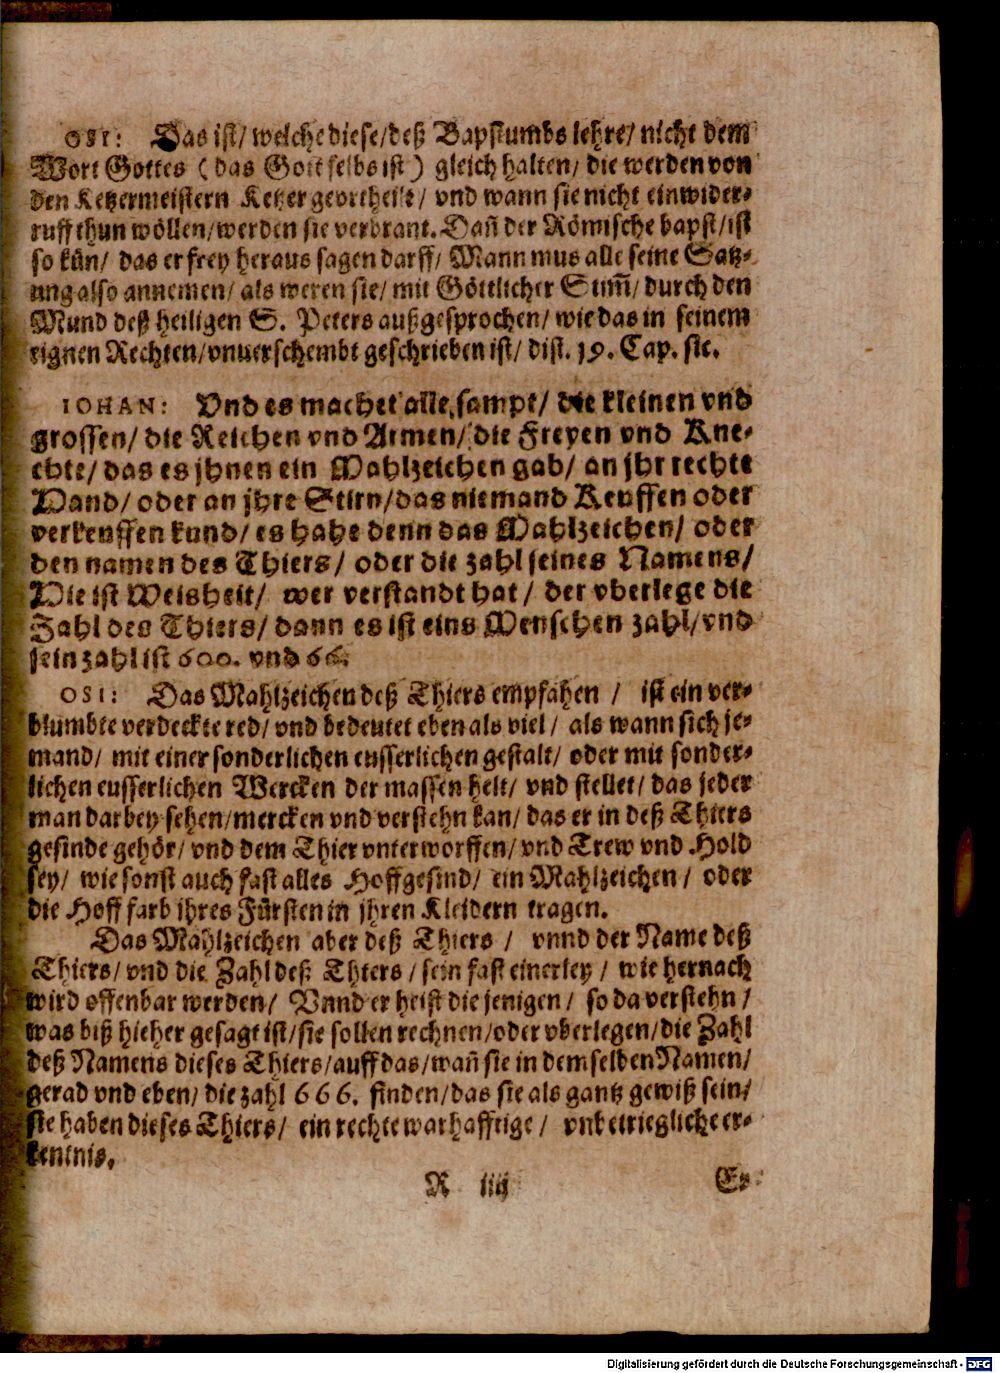 OSI: Das ist/ welche diese/ deß Bapstumbs lehre/ nicht dem
Wort Gottes (das Gott selbs ist) gleich halten/ die werden von
den Ketzermeistern Ketzer geortheilt/ vnd wann sie nicht einwider-
ruff thun wöllen/ werden sie verbrant. Dañ der Römische bapst/ ist
so kün/ das er frey heraus sagen darff/ Mann mus alle seine Satz-
ung also annemen/ als weren sie/ mit Göttlicher Stim̃/ durch den
Mund deß heiligen S. Peters außgesprochen/ wie das in seinem
eignen Rechten/ vnuerschembt geschrieben ist/ dist. 19. Cap. sic.
IOHAN: Vnd es machet alle sampt/ die kleinen vnd
grossen/ die Reichen vnd Armen/ die Freyen vnd Kne-
chte/ das es jhnen ein Mahlzeichen gab/ an jhr rechte
Hand/ oder an jhre Stirn/ das niemand Keuffen oder
verkeuffen kund/ es habe denn das Mahlzeichen/ oder
den namen des Thiers/ oder die zahl seines Namens/
Hie ist Weisheit/ wer verstandt hat/ der vberlege die
Zahl des Thiers/ dann es ist eins Menschen zahl/ vnd
sein zahl ist 600. vnd 66.
OSI: Das Mahlzeichen deß Thiers empfahen / ist ein ver-
blumbte verdeckte red/ vnd bedeutet eben als viel/ als wann sich je-
mand/ mit einer sonderlichen eusserlichen gestalt/ oder mit sonder-
lichen eusserlichen Wercken der massen helt/ vnd stellet/ das jeder
man darbey sehen/ mercken vnd verstehn kan/ das er in deß Thiers
gesinde gehör/ vnd dem Thier vnterworffen/ vnd Trew vnd Hold
sey/ wie sonst auch fast alles Hoffgesind/ ein Mahlzeichen/ oder
die Hoff farb ihres Fürsten in jhren Kleidern tragen.
Das Mahlzeichen aber deß Thiers / vnnd der Name deß
Thiers/ vnd die Zahl deß Thiers / sein fast einerley / wie hernach
wird offenbar werden/ Vnnd er heist die jenigen/ so da verstehn/
was biß hieher gesagt ist/ sie sollen rechnen/ oder vberlegen/ die Zahl
deß Namens dieses Thiers/ auff das/ wañ sie in demselben Namen/
gerad vnd eben/ die zahl 666. finden/ das sie als gantz gewiß sein/
sie haben dieses Thiers/ ein rechte warhafftige / vnbetriegliche er-
kentnis.
R iiij Er-
Digitalisierung gefördert durch die Deutsche Forschungsgemeinschaft - DFG